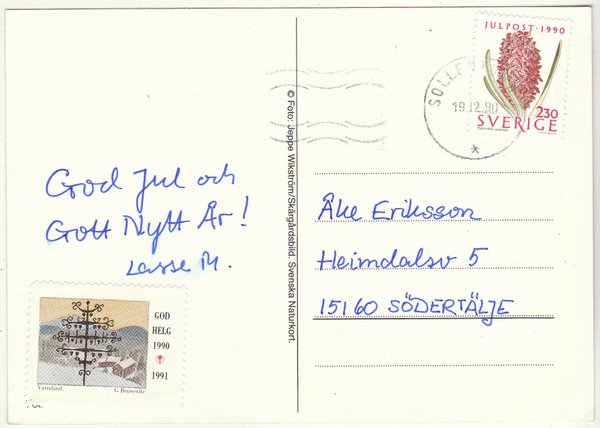 JULPOST · 1990
2.30
SVERIGE
19.12.90
God Jul och
Gott Nytt År!
Lasse M.
© Foto: Jeppe Wikström/Skärgårdsbild. Svenska Naturkort.
Åke Eriksson
Heimdalsv 5
15160 SÖDERTÄLJE
GOD
HELG
1990
1991
Värmland.
G Brusewitz